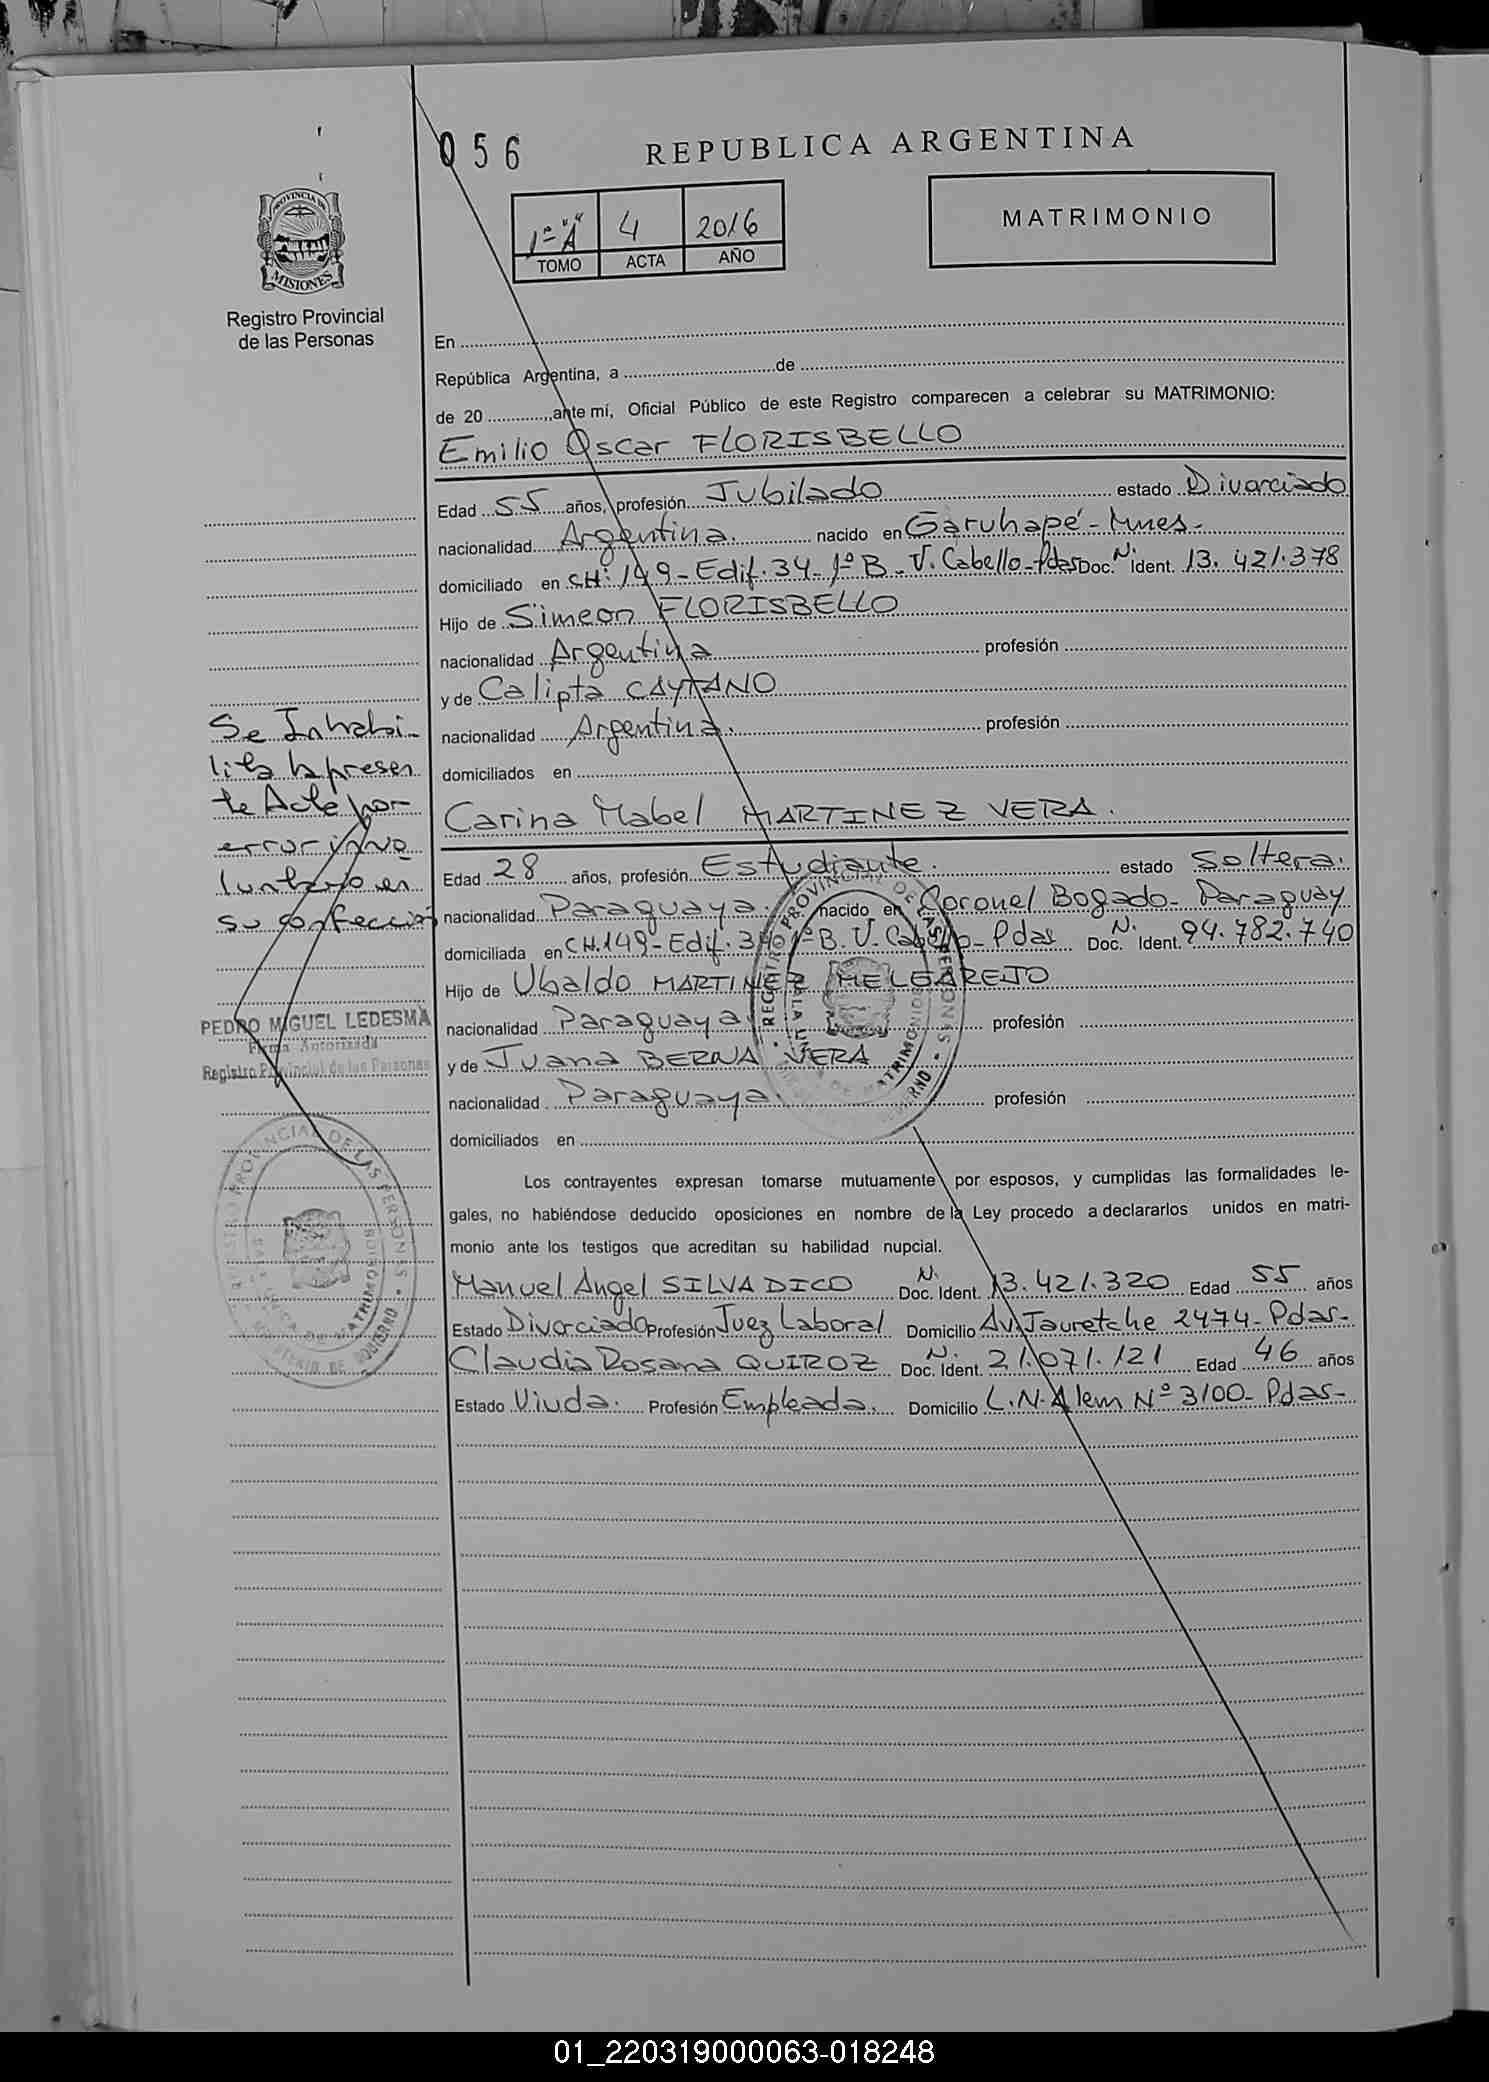 056
REPUBLICA ARGENTINA
PROVINCIA DE
MISIONES
Registro Provincial
de las Personas
1º "A" 4 2016
TOMO ACTA AÑO
MATRIMONIO
En
República Argentina, a de
de 20 ante mí, Oficial Público de este Registro comparecen a celebrar su MATRIMONIO:
Emilio Oscar FLORISBELLO
Edad 55 años, profesión Jubilado estado Divorciado
nacionalidad Argentina. nacido en Garuhapé - Mnes -
domiciliado en CH: 149 - Edif. 34 - 1º B - V. Cabello - Pdas Doc. N. Ident. 13.421.378
Hijo de Simeon FLORISBELLO
nacionalidad Argentina profesión
y de Calipta CAYTANO
nacionalidad Argentina. profesión
domiciliados en
Carina Mabel MARTINEZ VERA.
Edad 28 años, profesión Estudiante. estado Soltera.
nacionalidad Paraguaya. nacido en Coronel Bogado - Paraguay
domiciliada en CH. 149 - Edif. 34 1º B. V. Cabello - Pdas Doc. N. Ident. 94.782.740
Hijo de Ubaldo MARTINEZ MELGAREJO
nacionalidad Paraguaya profesión
y de Juana BERNA VERA
nacionalidad Paraguaya. profesión
domiciliados en
Los contrayentes expresan tomarse mutuamente por esposos, y cumplidas las formalidades le-
gales, no habiéndose deducido oposiciones en nombre de la Ley procedo a declararlos unidos en matri-
monio ante los testigos que acreditan su habilidad nupcial.
Manuel Angel SILVA DICO Doc. N. Ident. 13.421.320 Edad 55 años
Estado Divorciado Profesión Juez Laboral Domicilio Av. Jauretche 2474 - Pdas -
Claudia Rosana QUIROZ Doc. N. Ident. 21.071.121 Edad 46 años
Estado Viuda. Profesión Empleada. Domicilio L.N. Alem Nº 3100 - Pdas -
Se Inhabi-
lita la presen
te Acta por
error invo
luntario en
su confección
PEDRO MIGUEL LEDESMA
Firma Autorizada
Registro Provincial de las Personas
REGISTRO PROVINCIAL DE LAS PERSONAS
MATRIMONIOS
MINISTERIO DE GOBIERNO
REGISTRO PROVINCIAL DE LAS PERSONAS
DE MATRIMONIOS
GOBIERNO
01_220319000063-018248